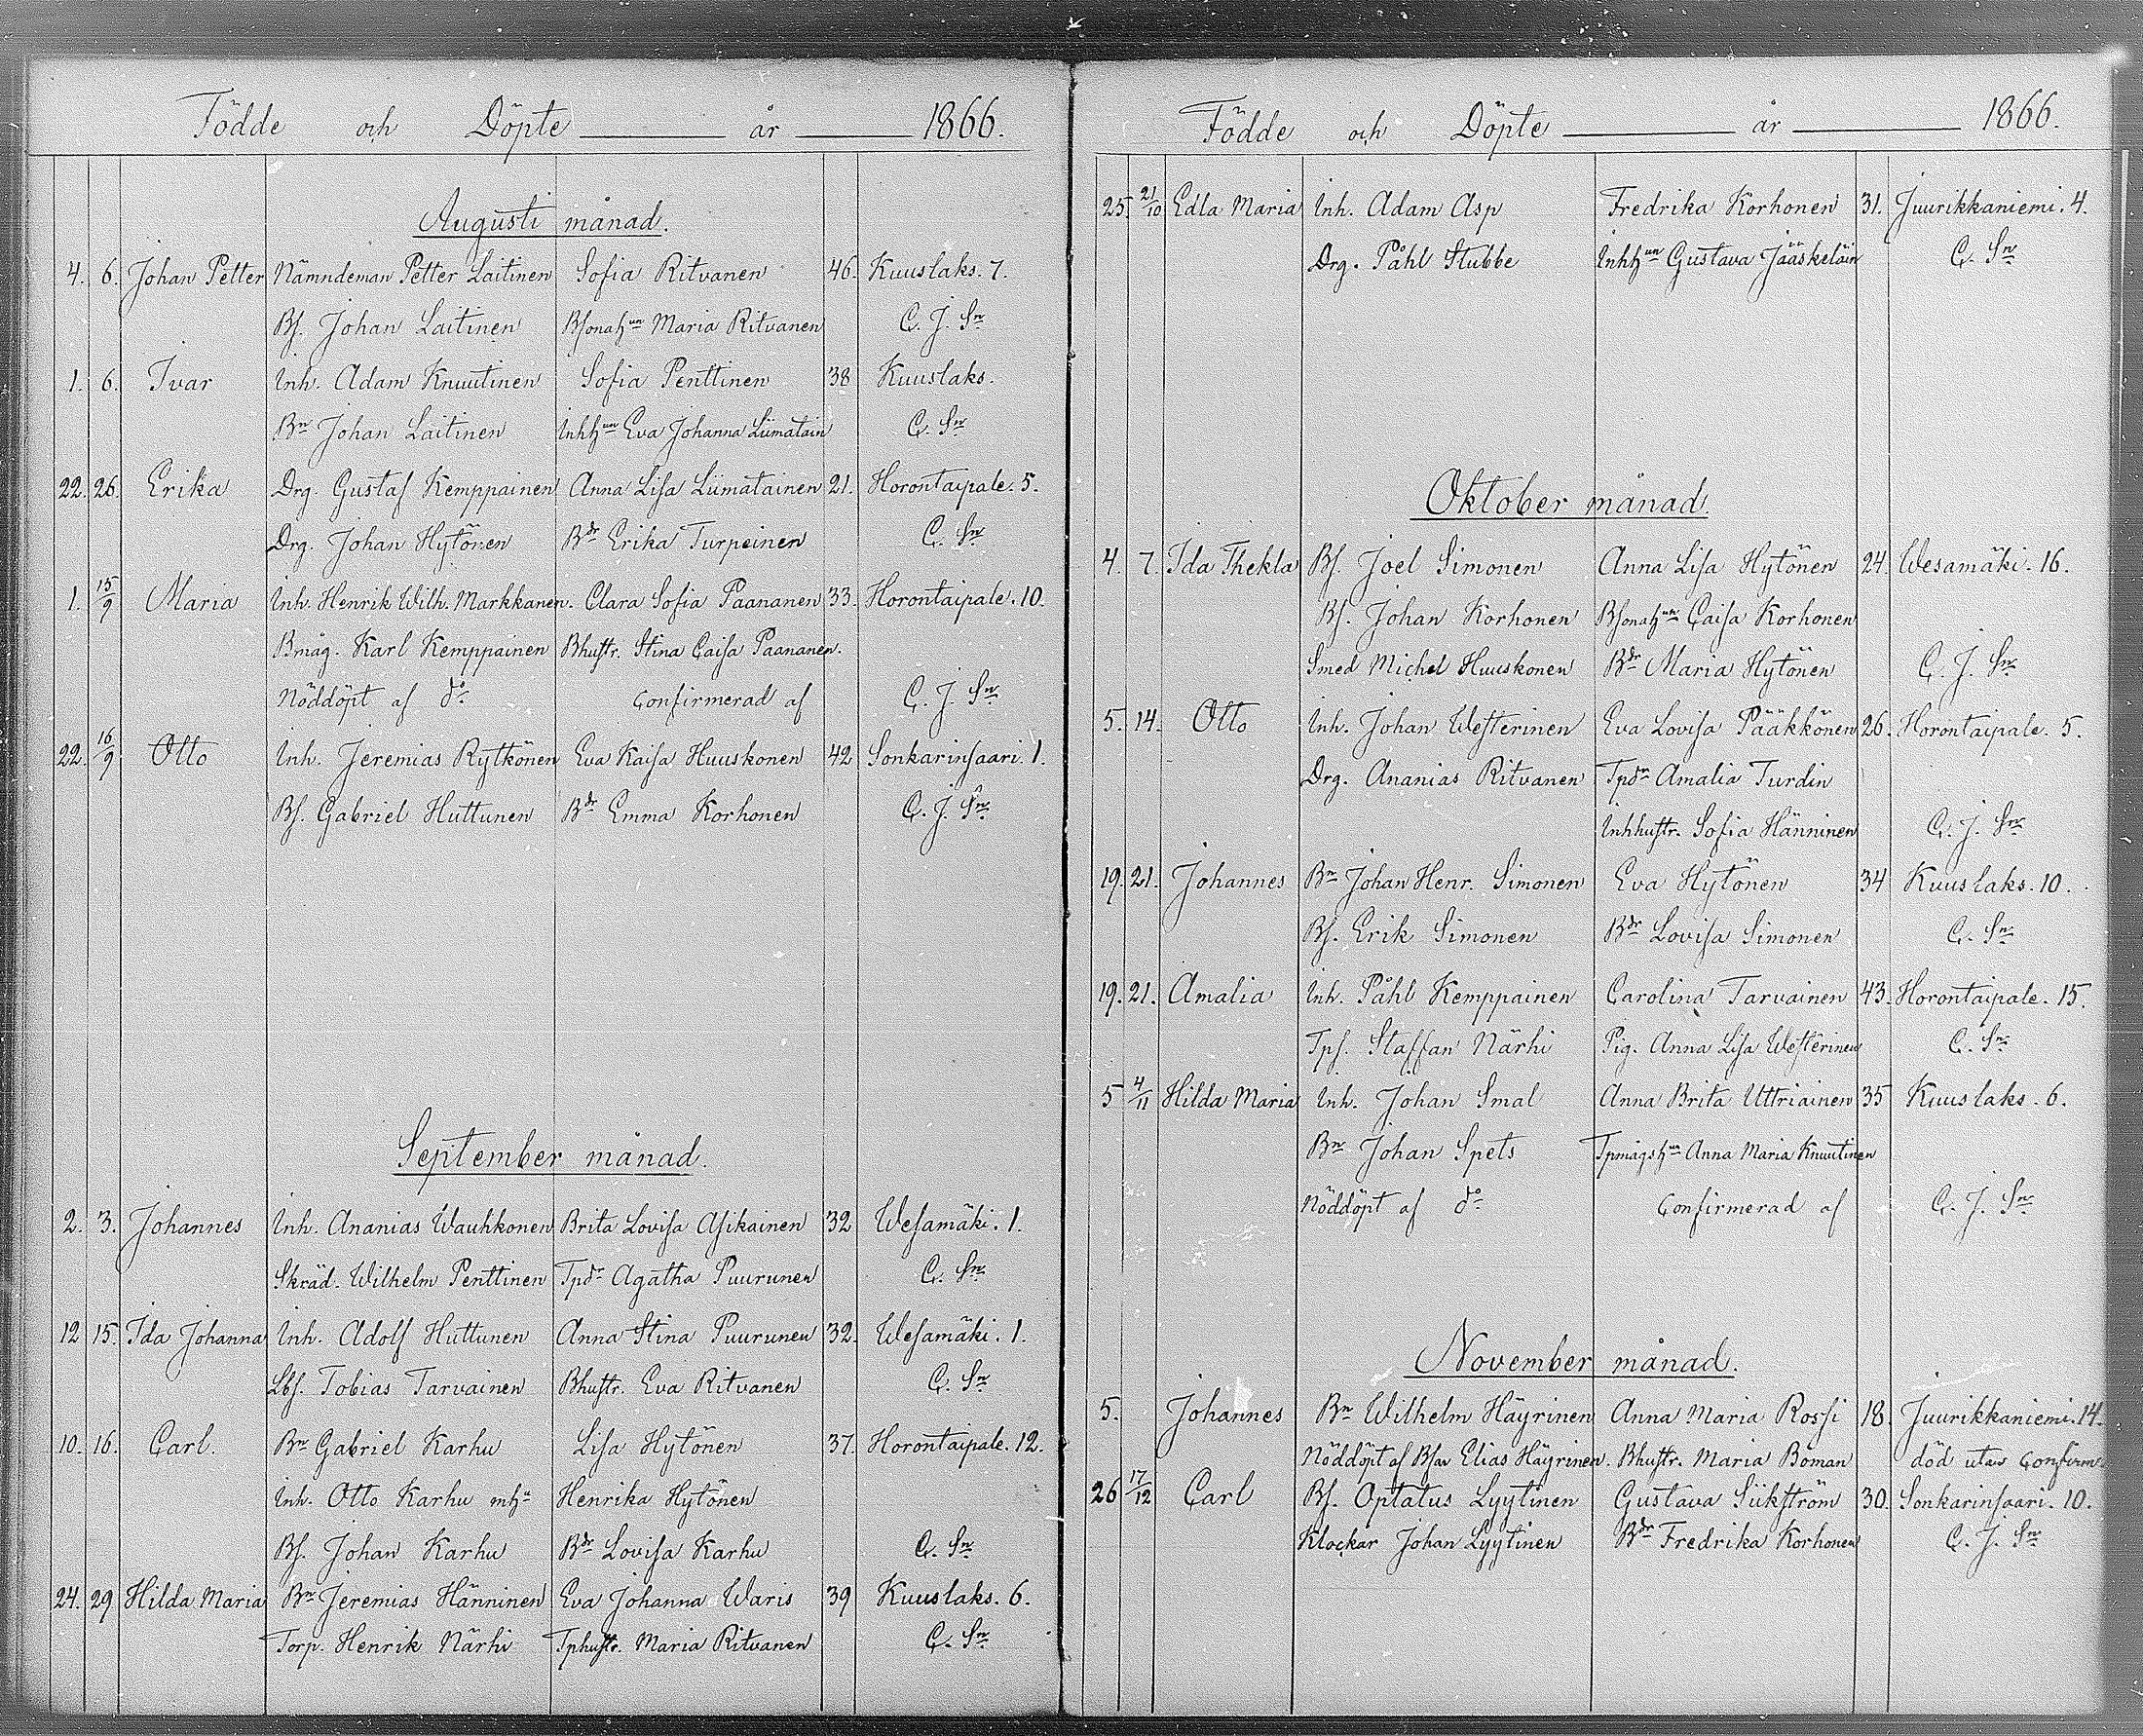 Födde och Döpte år 1866.
Augusti månad.
4. 6. Johan Petter Nämndeman Petter Laitinen Sofia Ritvanen 46. Kuuslaks. 7.
Bs. Johan Laitinen Bsonahun Maria Ritvanen C. J. Sn
1. 6. Ivar Inh. Adam Knuutinen Sofia Penttinen 38 Kuuslaks.
Bn Johan Laitinen Inhhun Eva Johanna Liimatain C. Sn
22. 26. Erika Drg. Gustaf Kemppainen Anna Lisa Liimatainen 21. Horontaipale. 5.
Drg. Johan Hytönen Bdr Erika Turpeinen C. Sn
1. 15/9 Maria Inh. Henrik Wilh. Markkanen. Clara Sofia Paananen 33. Horontaipale. 10.
Bmåg. Karl Kemppainen Bhustr. Stina Caisa Paananen.
Nöddöpt af do Confirmerad af C. J. Sn
22. 16/9 Otto Inh. Jeremias Rytkönen Eva Kaisa Huuskonen 42 Sonkarinsaari. 1.
Bs. Gabriel Huttunen Bdr Emma Korhonen C. J. Sn
September månad.
2. 3. Johannes Inh. Ananias Wauhkonen Brita Lovisa Asikainen 32 Wesamäki. 1.
Skräd. Wilhelm Penttinen Tpdr Agatha Puurunen C. Sn
12 15. Ida Johanna Inh. Adolf Huttunen Anna Stina Puurunen 32. Wesamäki. 1.
Lbs. Tobias Tarvainen Bhustr. Eva Ritvanen C. Sn
10. 16. Carl. Bn Gabriel Karhu Lisa Hytönen 37. Horontaipale. 12.
Inh. Otto Karhu mhu Henrika Hytönen
Bs. Johan Karhu Bdr Lovisa Karhu C. Sn
24. 29 Hilda Maria Bn Jeremias Hänninen Eva Johanna Waris 39 Kuuslaks. 6.
Torp. Henrik Närhi Tphustr. Maria Ritvanen C. Sn
Födde och Döpte år 1866.
25. 21/10 Edla Maria Inh. Adam Asp Fredrika Korhonen 31. Juurikkaniemi. 4.
Drg. Påhl Stubbe Inhhun Gustava Jääskeläin C. Sn
Oktober månad.
4. 7. Ida Thekla Bs. Joel Simonen Anna Lisa Hytönen 24. Wesamäki. 16.
Bs. Johan Korhonen Bsonahun Caisa Korhonen
Smed Michel Huuskonen Bdr Maria Hytönen C. J. Sn
5. 14. Otto Inh. Johan Westerinen Eva Lovisa Pääkkönen 26. Horontaipale. 5.
Drg. Ananias Ritvanen Tpdr Amalia Turdin
Inhhustr. Sofia Hänninen C. J. Sn
19. 21. Johannes Bn Johan Henr. Simonen Eva Hytönen 34 Kuuslaks. 10.
Bs. Erik Simonen Bdr Lovisa Simonen C. Sn
19. 21. Amalia Inh. Påhl Kemppainen Carolina Tarvainen 43. Horontaipale. 15.
Tps. Staffan Närhi Pig. Anna Lisa Westerinen C. Sn
5 4/11 Hilda Maria Inh. Johan Smal Anna Brita Uttriainen 35 Kuuslaks. 6.
Bn Johan Spets Tpmågshun Anna Maria Knuutinen
Nöddöpt af do Confirmerad af C. J. Sn
November månad.
5. Johannes Bn Wilhelm Häyrinen Anna Maria Rossi 18. Juurikkaniemi. 14.
Nöddöpt af Bsn Elias Häyrinen. Bhustr. Maria Boman död utan Confirm.
26 17/12 Carl Bs. Optatus Lyytinen Gustava Siikström 30. Sonkarinsaari. 10.
Klockar Johan Lyytinen Bdr Fredrika Korhonen C. J. Sn